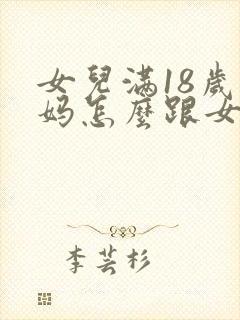 女兒滿18歲
妈怎麼跟女
李芸杉